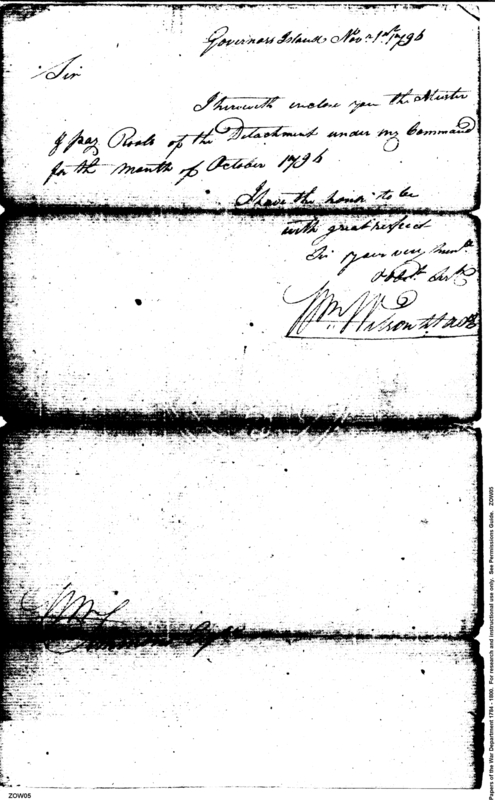 Governors Island Nov.r 1st 1796
Sir
I herewith enclose you the Muster
& pay Rools of the Detachment under my Command
for the month of October 1796
I have the honor to be
with great respect
Sir your very hum.
Obdt. Servt.
Wm. Wilson Lt
Wm.
Simmons Esqr.
ZOW05
Papers of the War Department 1784 - 1800. For research and instructional use only. See Permissions Guide. ZOW05